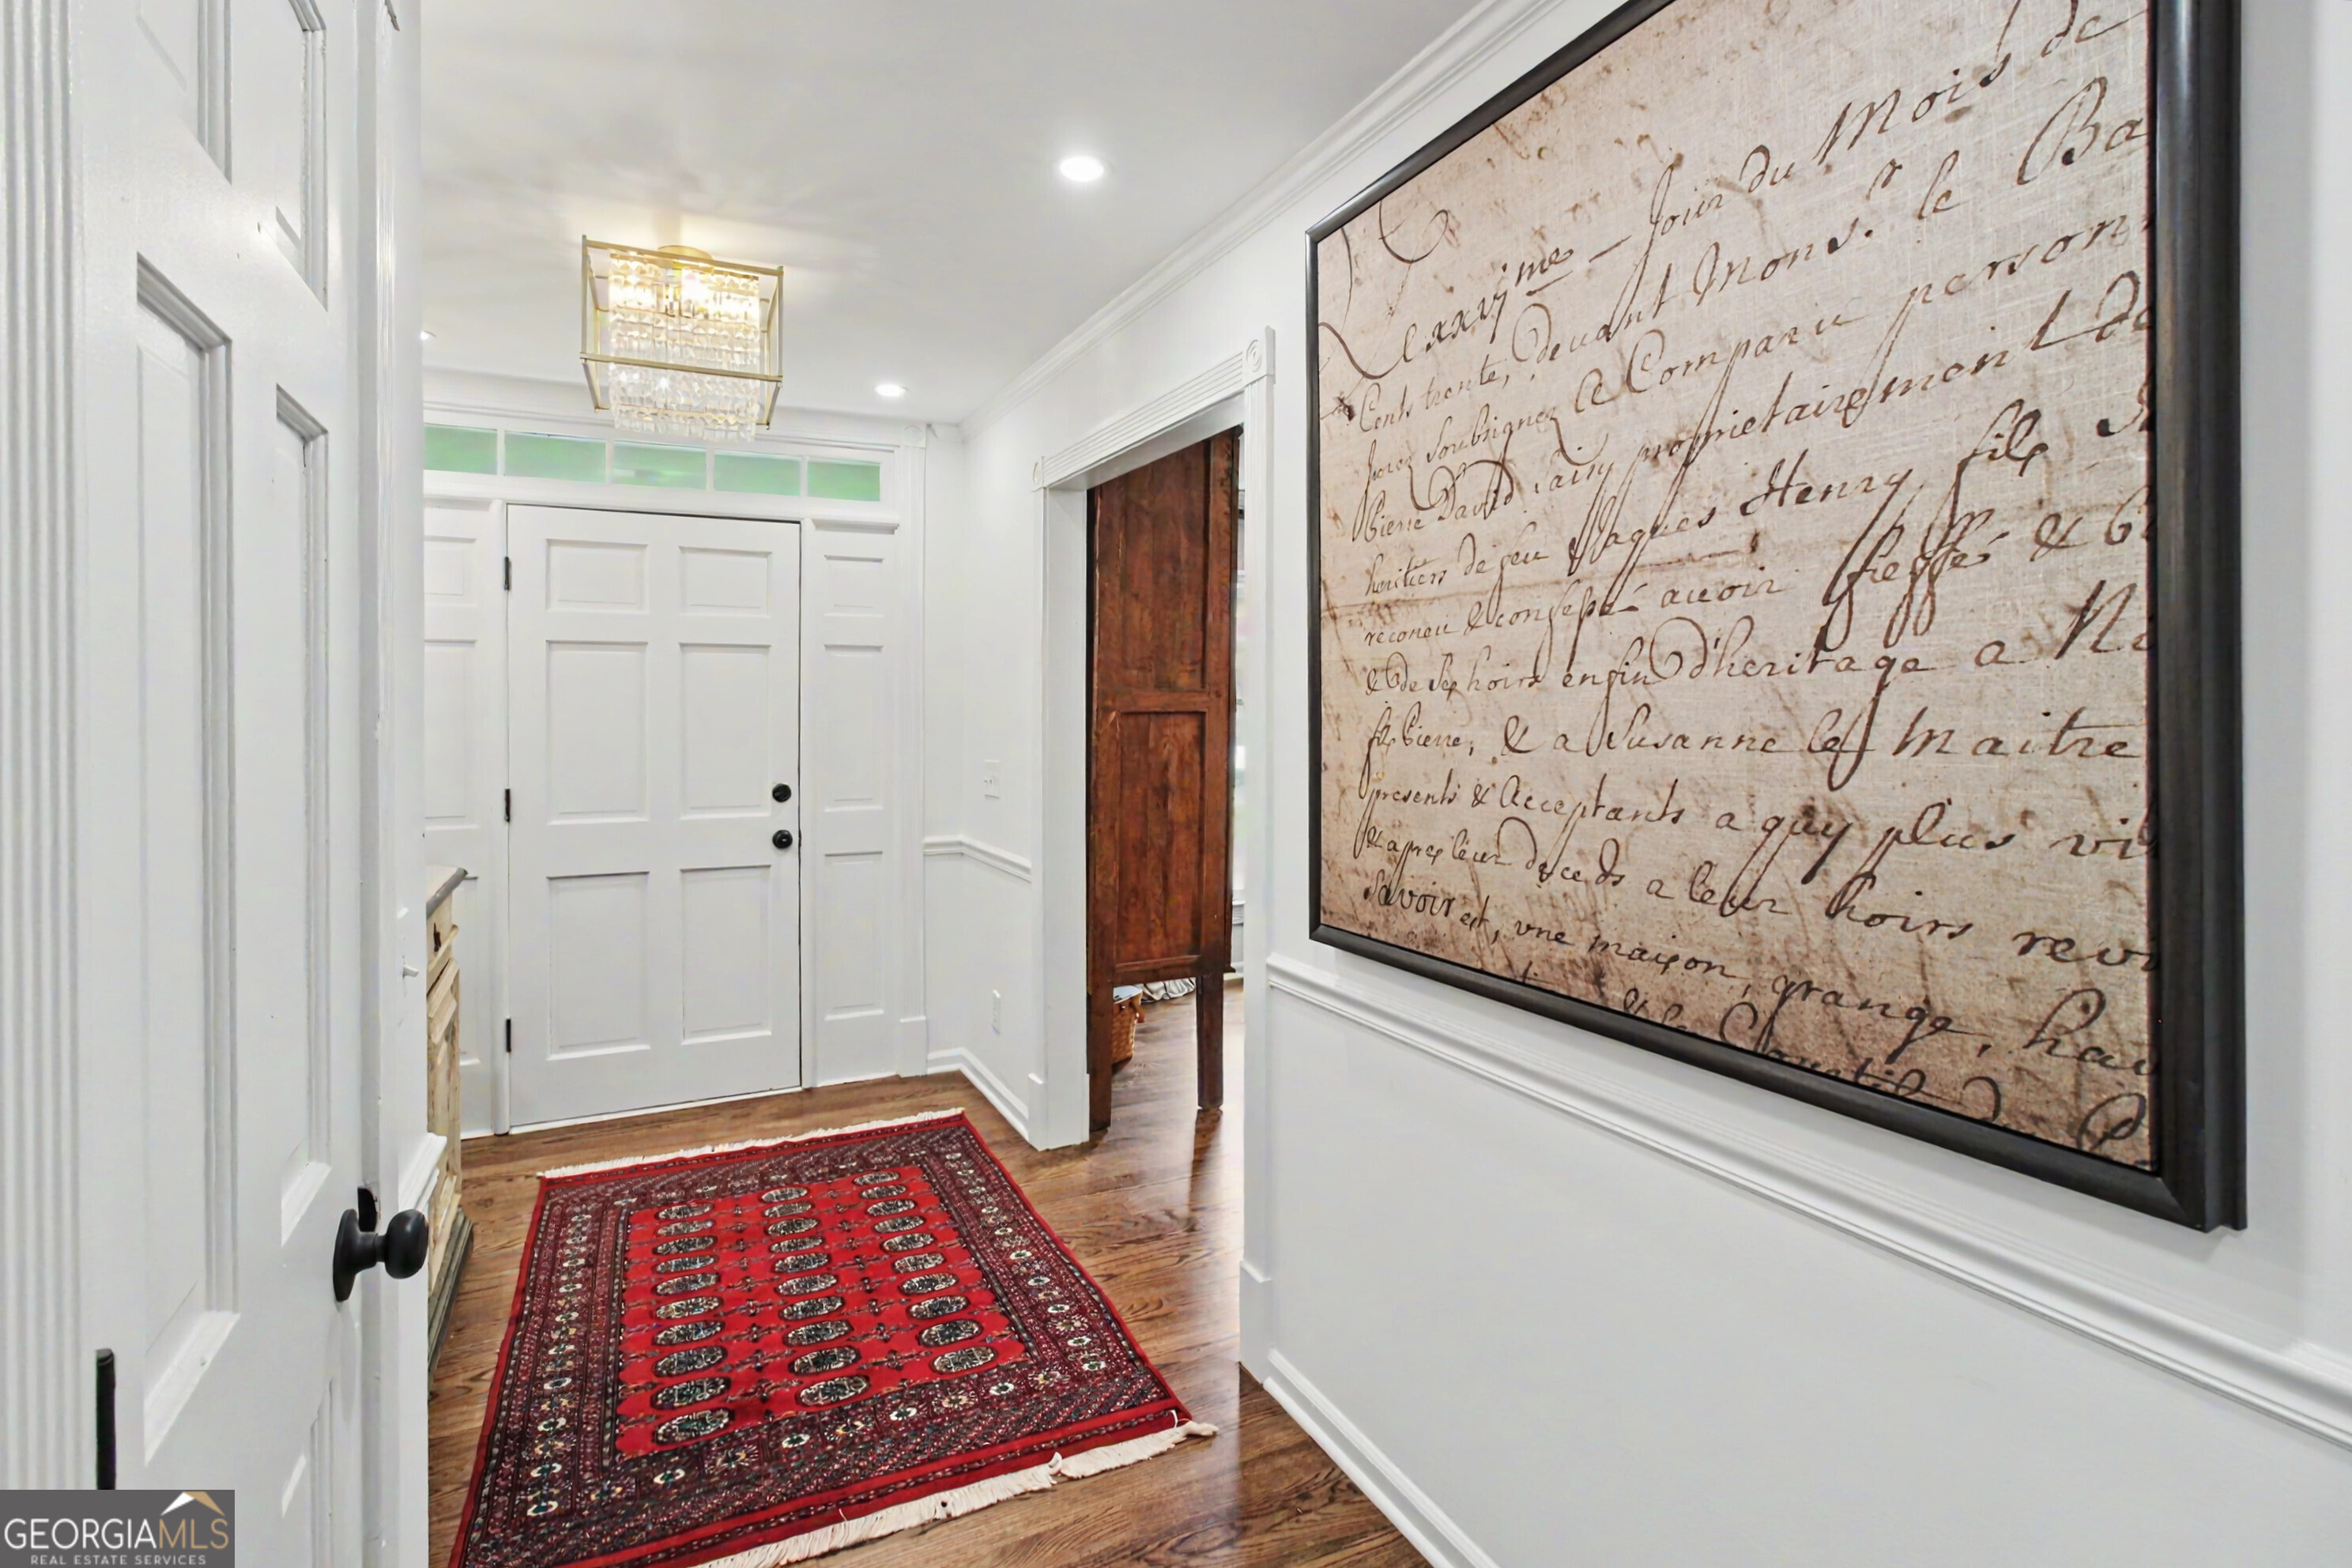 Lexxvj me — Jour du Mois de
Cents trente, Devant Mons. r le Ba
Juré Soubsignez A Comparu person
Pierre David proprietairement De
heritiers de feu Jaques Henry, fils
reconeu & confessé avoir fieffé &
& De Ses hoirs enfin D'heritage a Ni
fils Pierre, & a Susanne le Maitre
presents & Acceptants a quy plus vi
& apres leur deceds a leur hoirs rev
Savoir est, vne maison, grange, hau
GEORGIAMLS
REAL ESTATE SERVICES